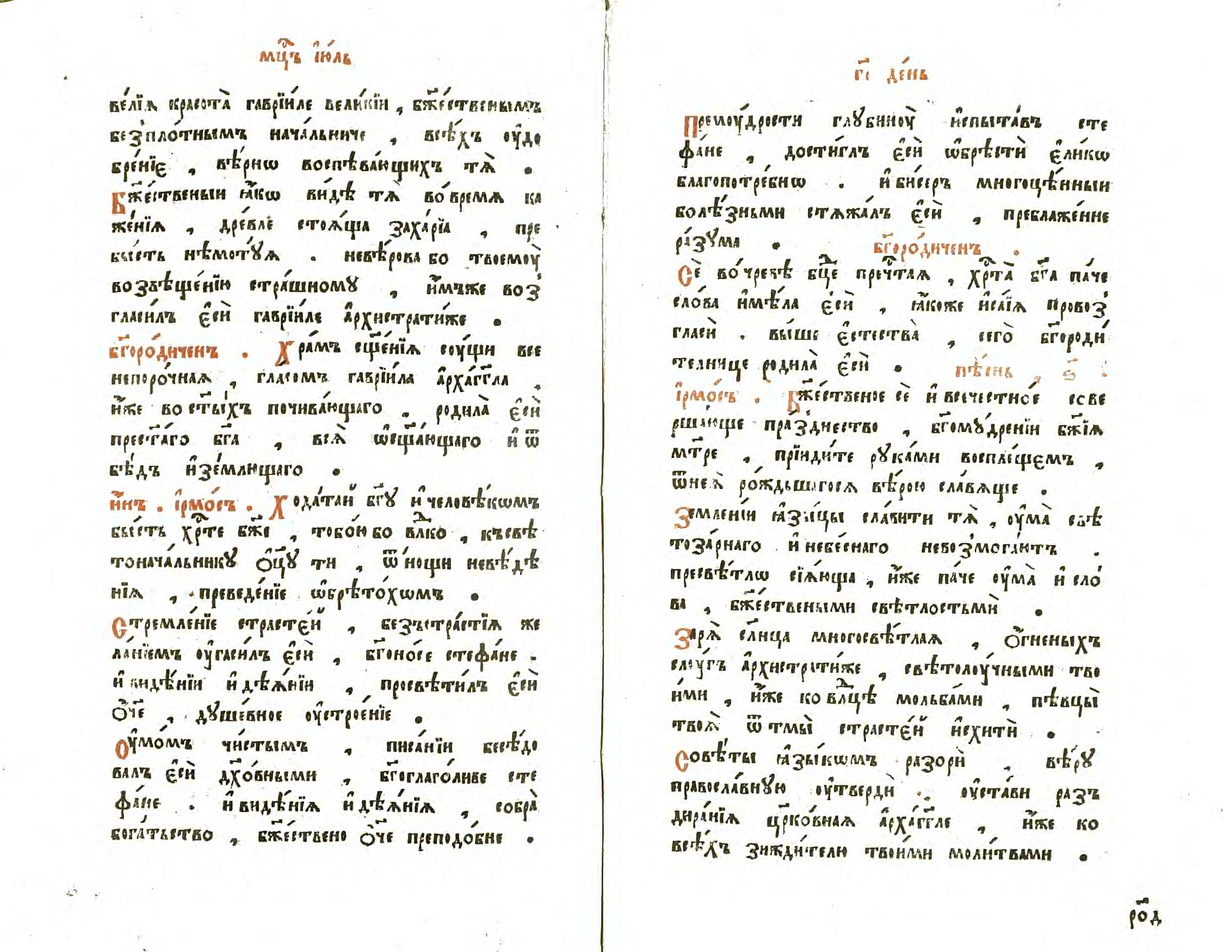 мцⷭ҇ъ і҆ю́ль
ве́лїѧ красота̀ гаврїи́ле вели́кїи , бж҃е́ственымъ
безпло́тнымъ нача́льниче , всѣ́хъ оу҆до
бре́нїе , вѣ́рнѡ воспѣва́ющихъ тѧ̀ .
Бж҃е́ственыи ꙗ҆́кѡ ви́дѣ тѧ̀ во́ времѧ ка
же́нїѧ , дре́вле стоѧ́ща заха́рїа , пре
бы́сть нѣмо́туѧ . невѣ́рова бо твоемꙋ̀
возвѣще́нїю стра́шномꙋ , и҆́мъже воз
гласи́лъ є҆сѝ гаврїи́ле а҆рхистрати́же .
бг҃оро́диченъ . Хра́мъ сщ҃е́нїѧ соу́щи все
непоро́чнаѧ , гла́сомъ гаврїи́ла а҆рха́гг҃ла ,
и҆́же во ст҃ы́хъ почива́ющаго . родила̀ є҆сѝ
прест҃а́го бг҃а , всѧ̀ ѡ҆сщ҃а́ющаго и҆ ѿ
бѣ́дъ и҆зе́млющаго .
и҆́нъ . і҆рмо́съ . Хода́таи бг҃ꙋ и҆ человѣ́кѡмъ
бы́сть хрⷭ҇тѐ бж҃е , тобо́ю бо влⷣко , къ свѣ
тонача́льникꙋ ѻ҆ц҃ꙋ̀ ти , ѿ но́щи невѣ́дѣ
нїѧ , преведе́нїе ѡ҆брѣто́хѡмъ .
Стремле́нїе страсте́й , безъстра́стїѧ же
ла́нїемъ оу҆гаси́лъ є҆сѝ , бг҃оно́се стефа́не .
и҆ видѣ́нїи и҆ дѣѧ́нїи , просвѣти́лъ є҆сѝ
ѻ҆́ч҃е , дꙋше́вное оу҆строе́нїе .
Оу҆мо́мъ чи́стымъ , писа́нїи бесѣ́до
валъ є҆сѝ дх҃о́вными , бг҃оглаго́ливе сте
фа́не . и҆ видѣ́нїѧ и҆ дѣѧ́нїѧ , собра̀
бога́тьство , бж҃е́ствено ѻ҆́ч҃е преподо́бне .
г҃і де́нь
Премоу́дрости глꙋбинꙋ̀ и҆спыта́въ сте
фа́не , дости́глъ є҆сѝ ѡ҆брѣстѝ є҆ли́кѡ
благопотре́бнѡ . и҆ би́серъ многоцѣ́нныи
болѣ́зньми стѧжа́лъ є҆сѝ , преблаже́нне
ра́зꙋма . бг҃оро́диченъ .
Сѐ во чре́вѣ бц҃е преч҃таѧ , хрⷭ҇та̀ бг҃а па́че
сло́ва и҆мѣ́ла є҆сѝ , ꙗ҆́коже и҆са́їѧ провоз
гласѝ . вы́ше є҆стества̀ , сего̀ бг҃ороди́
телнице родила̀ є҆сѝ . пѣ́снь , ѕ҃ .
і҆рмо́съ . Бж҃е́ственое сѐ и҆ всечестно́е сове
рша́юще пра́зднество , бг҃омꙋ́дренїи бж҃їѧ
мт҃ре , прїиди́те рꙋка́ми воспле́щемъ ,
ѿ неѧ̀ ро́ждьшагосѧ вѣ́рою сла́вѧще .
Земле́нїи ꙗ҆зы́цы сла́вити тѧ̀ , оу҆ма̀ свѣ
тоза́рнаго и҆ небе́снаго невозмога́ютъ .
пресвѣ́тлѡ сїѧ́юща , и҆́же па́че оу҆ма̀ и҆ сло́
ва , бж҃е́ствеными свѣ́тлостьмѝ .
Зарѧ̀ сл҃нца многосвѣ́тлаѧ , ѻ҆́гненыхъ
слоу́гъ а҆рхистрати́же , свѣтолоу́чными тво
и́ми , и҆́же ко влⷣцѣ мольба́ми , пѣвцы̀
твоѧ̀ ѿ тмы̀ страсте́й и҆схитѝ .
Совѣ́ты ꙗ҆зы́кѡмъ разорѝ , вѣ́рꙋ
правосла́внꙋю оу҆твердѝ . оу҆ста́ви раз
дира́нїѧ цр҃ко́внаѧ а҆рха́гг҃ле , и҆́же ко
всѣ́хъ зижди́телю твои́ми моли́твами .
роⷣд